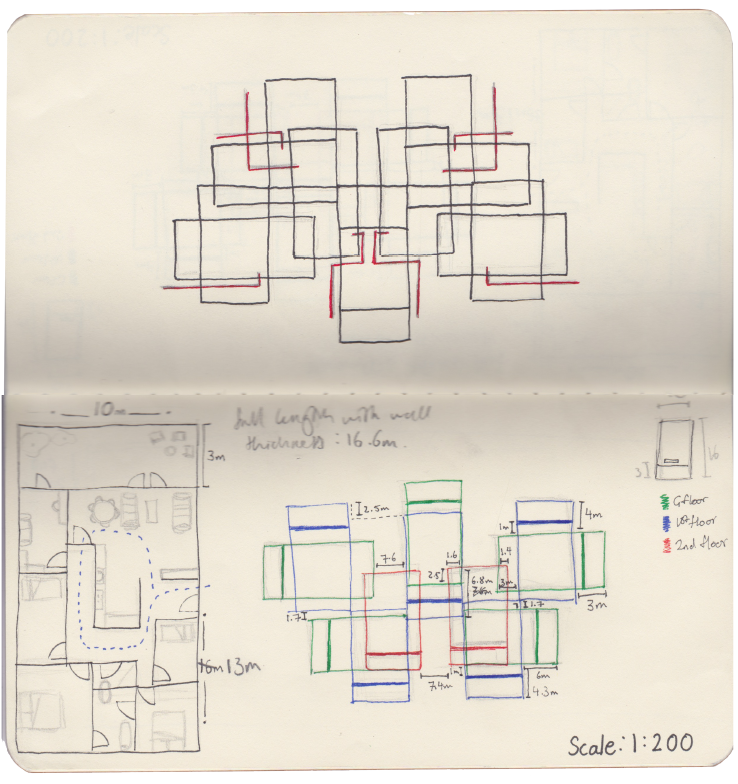 10m
Full length with wall
thickness : 16.6m.
3m
16
3
G floor
1st floor
2nd floor
2.5m
4m
1m
7.6
1.6
1.4
2.5
6.8m
3m
1.7
1.7
3m
13m
1m
7.4m
6m
4.3m
Scale: 1:200